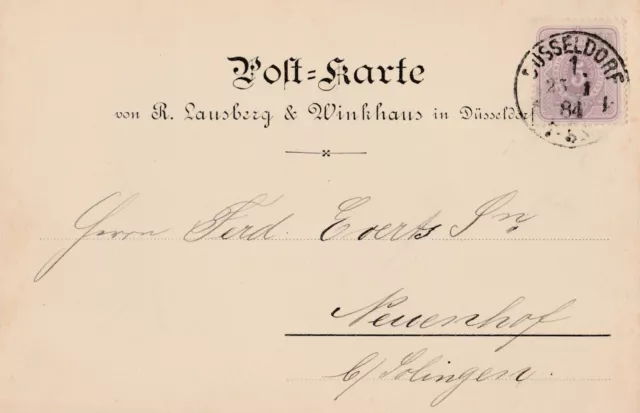 Post-Karte
von R. Lausberg & Winkhaus in Düsseldorf
DÜSSELDORF
1.
23 1
84
5
Herrn Ferd. Everts Sn,
Neuenhof
b/ Solingen.